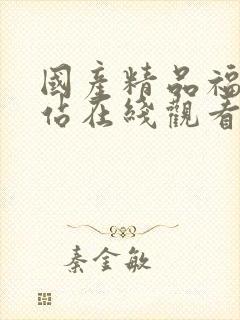 國産精品福
佔在綫觀看
秦金敏